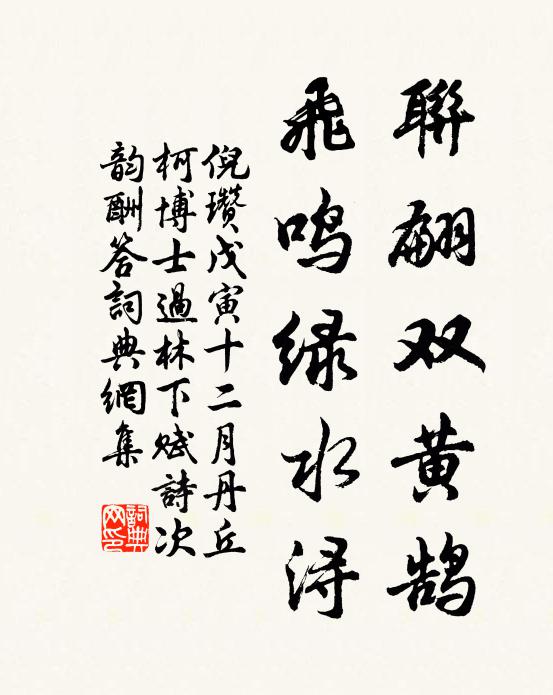 聯翩双黄鹄
飛鸣绿水浔
倪瓚戊寅十二月丹丘
柯博士過林下赋詩次
韵酬答詞典網集
詞典
网印